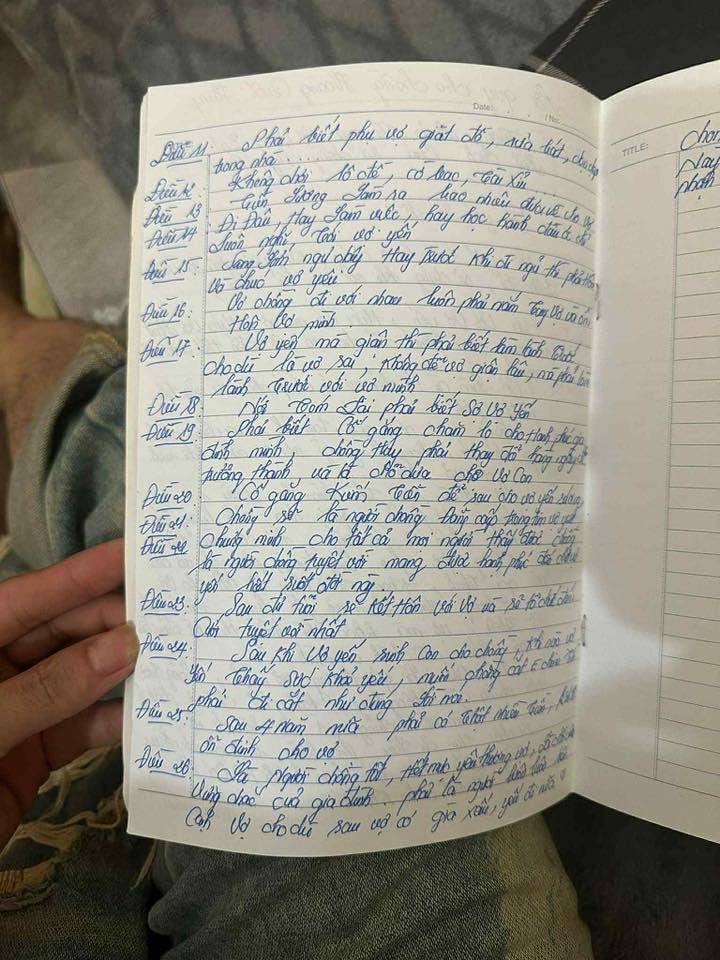 Date: No:
Điều 11: Phải biết phụ vợ giặt đồ, rửa bát, dọn dẹp
trong nhà .....
Điều 12 Không chơi lô đề, cờ bạc, tài xỉu
Điều 13 Tiền Lương Làm ra bao nhiêu đưa về cho Vợ
Điều 14 Đi Đâu, Hay Làm việc, hay học hành đâu
luôn nghĩ, tới vợ yến
Điều 15: Sáng ngủ dậy Hay Trước Khi đi ngủ thì phải Hôn
Và chúc vợ yêu
Điều 16: Vợ chồng đi với nhau luôn phải nắm Tay Vợ và
Hôn Vợ mình
Điều 17: Vợ yến mà giận thì phải biết làm lành Trước
cho dù là vợ sai, Không để vợ giận lâu, mà phải làm
lành Trước với vợ mình
Điều 18: Nói Tóm Lại phải biết Sợ Vợ Yến
Điều 19: Phải biết Cố gắng chăm lo cho Hạnh phúc gia
đình mình, chồng Hãy phải thay đổi hàng ngày để
trưởng thành, và là chỗ dựa cho Vợ Con
Điều 20 Cố gắng Kiếm Tiền để sau cho vợ yến
Điều 21: Chồng sẽ là người chồng Đẳng cấp trong tim vợ yến
Điều 22 Chứng minh cho tất cả mọi người thấy được chồng
là người chồng tuyệt vời mang được hạnh phúc đến cho vợ
yến hết suốt đời này
Điều 23: Sau đủ tuổi sẽ Kết Hôn với Vợ và sẽ tổ chức đám
Cưới tuyệt vời nhất
Điều 24: Sau Khi Vợ yến sinh Con cho chồng, Khi nào vợ
Yến Thấy sức khoẻ yếu, muốn chồng cắt
phải đi cắt như đúng lời nói
Điều 25: Sau 4 năm nữa phải có Thật nhiều Tiền,
ổn định cho vợ
Điều 26: Là Người chồng tốt, Hết mực yêu thương vợ, Là chỗ dựa
Vững chắc của gia đình. phải là người luôn luôn bên
Cạnh Vợ cho dù sau vợ có già xấu, yếu đi nữa
TITLE: